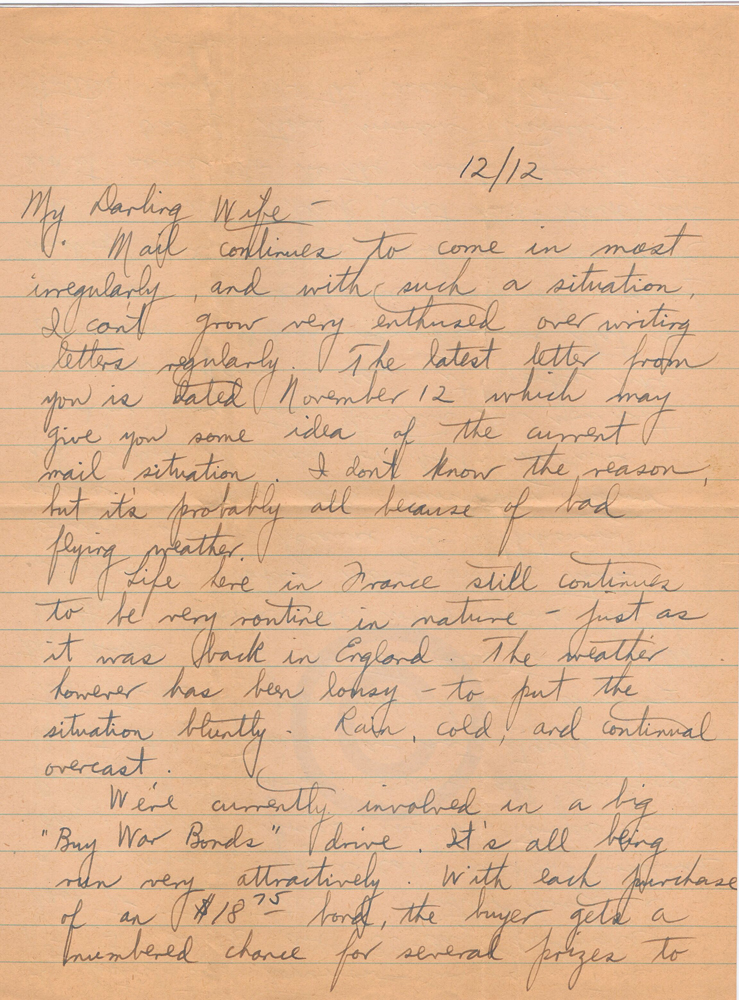 12/12
My Darling Wife –
Mail continues to come in most
irregularly, and with such a situation,
I can't grow very enthused over writing
letters regularly. The latest letter from
you is dated November 12 which may
give you some idea of the current
mail situation. I don't know the reason,
but it's probably all because of bad
flying weather.
Life here in France still continues
to be very routine in nature – just as
it was back in England. The weather
however has been lousy – to put the
situation bluntly. Rain, cold, and continual
overcast.
We're currently involved in a big
"Buy War Bonds" drive. It's all being
run very attractively. With each purchase
of an $18 75 bond, the buyer gets a
numbered chance for several prizes to